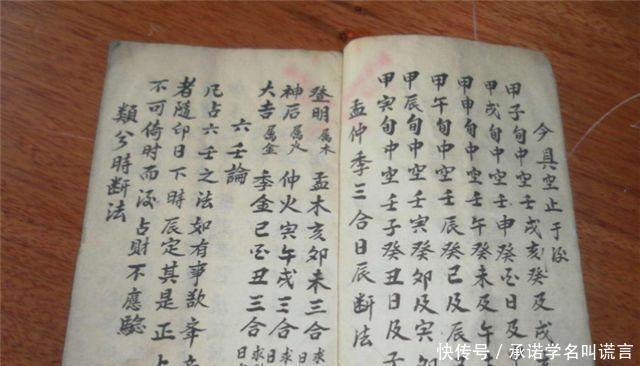 今具空止于後
甲子旬中空壬戌亥癸及戌
甲戌旬中空壬申癸酉日及
甲申旬中空壬午癸未及午
甲午旬中空壬辰癸巳及辰
甲辰旬中空壬寅癸卯及寅卯
甲寅旬中空壬子癸丑日及子
孟仲季三合日辰断法
登明属木 孟木亥卯未三合求
神后属火 仲火寅午戌三合求
大吉属金 季金巳酉丑三合
六壬論
凡占六壬之法如有事欲
者隨卬日下時辰定其是正
不可倚時而後占財不應驗
類兮時断法
快传号/承诺学名叫谎言